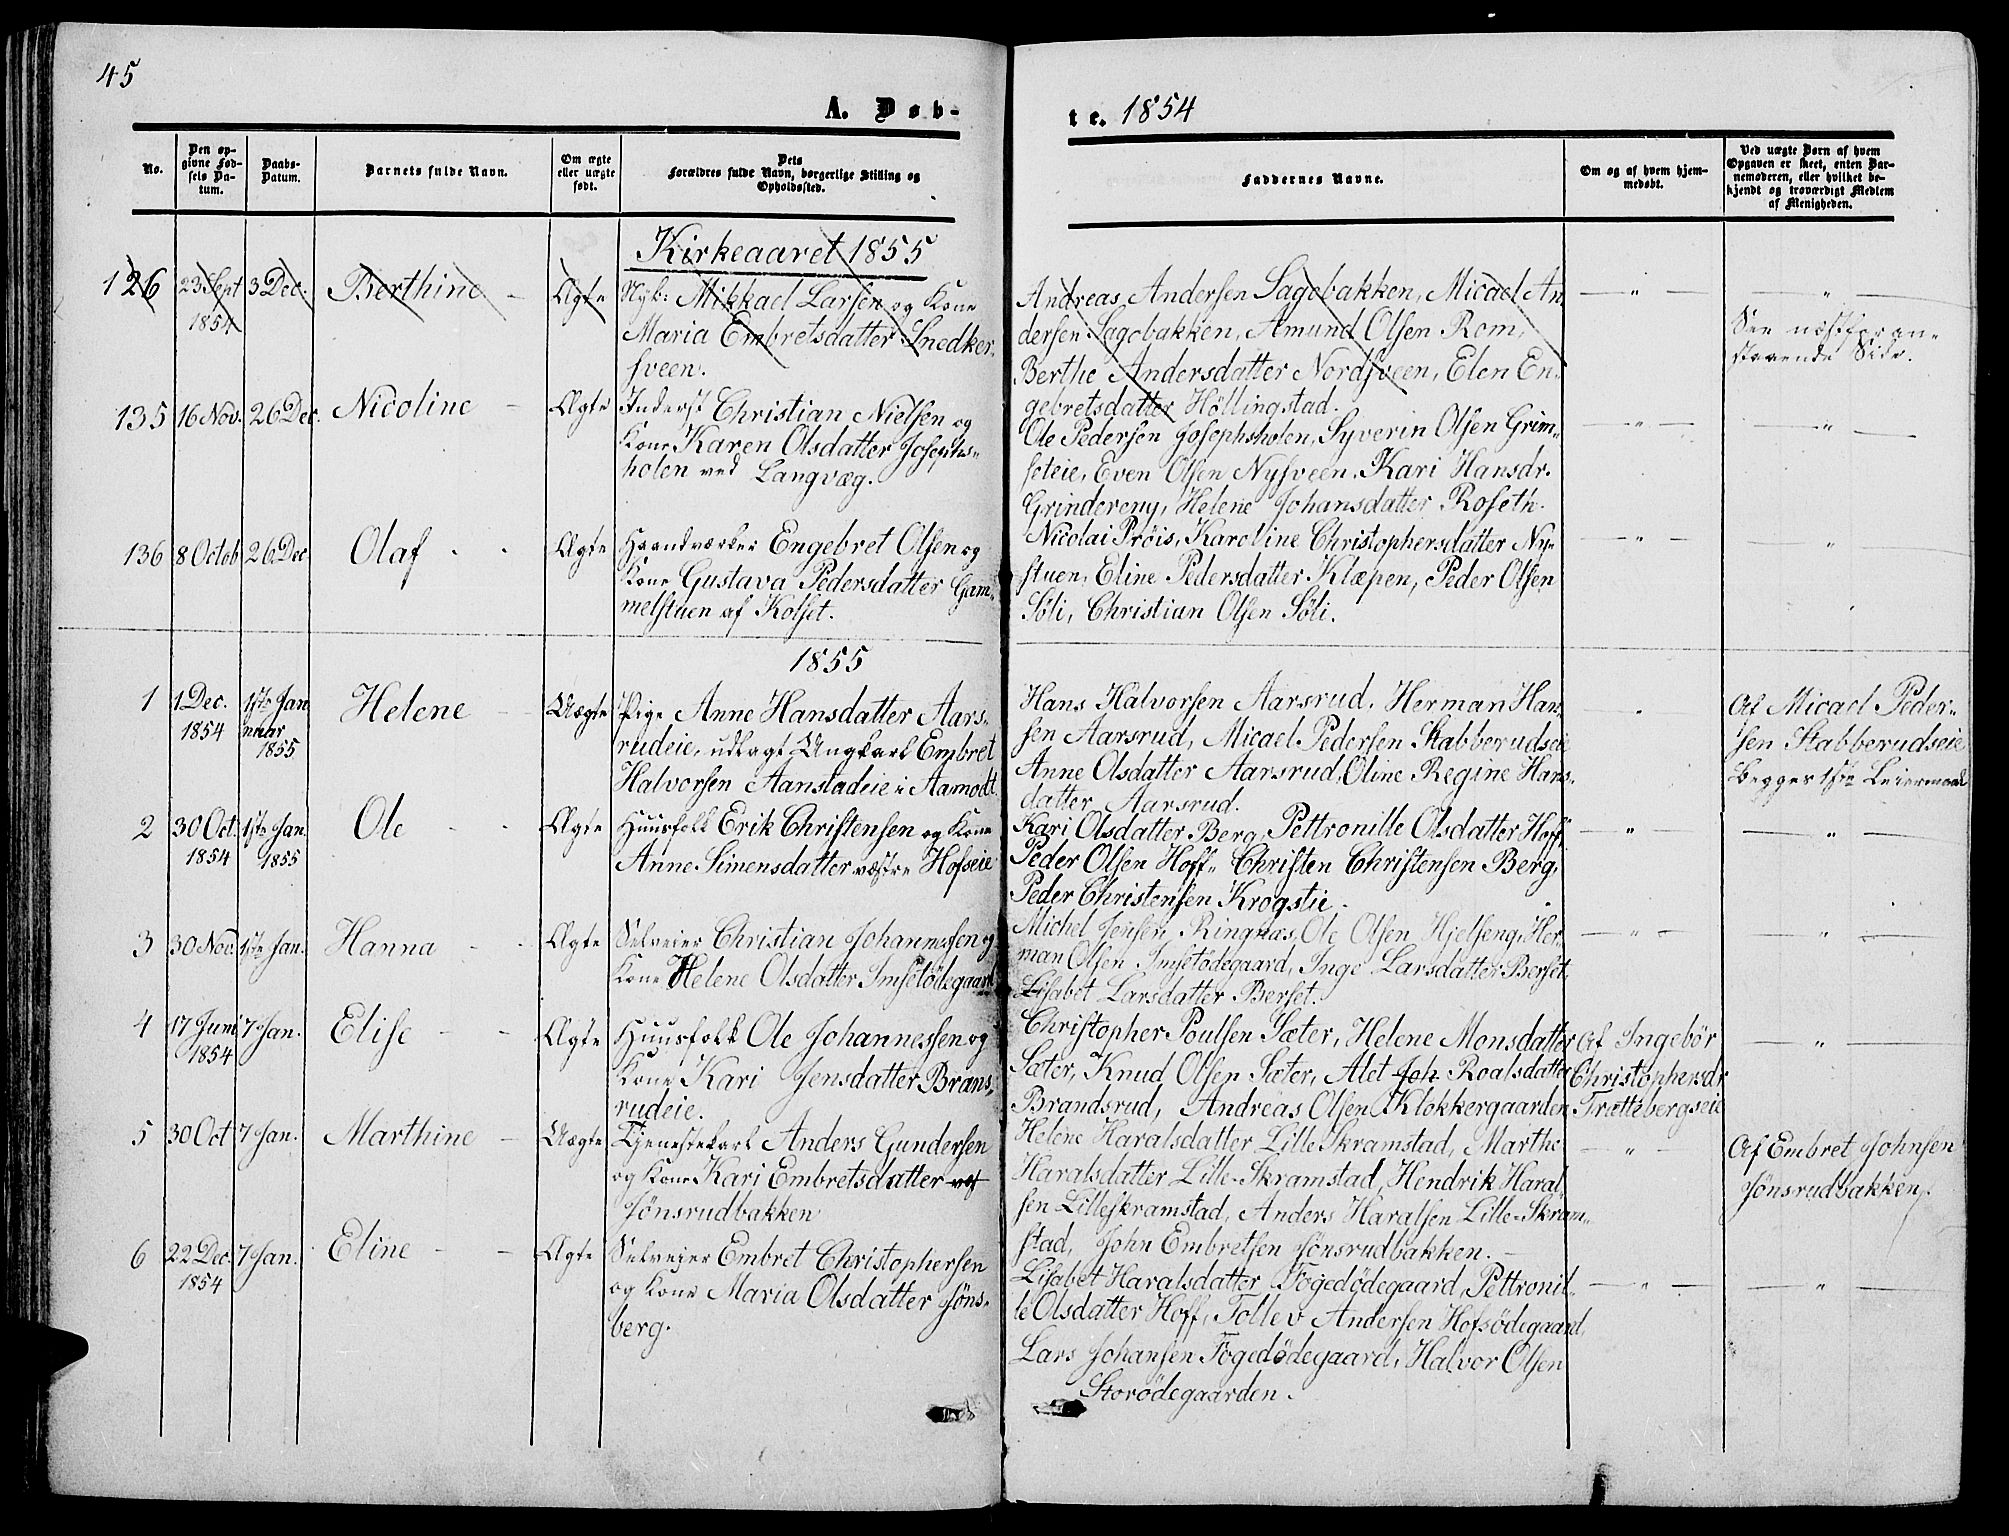 45
A. Døb-
te. 1854
No.
Den op-
givne Fød-
sels Da-
tum.
Daabs-
Datum.
Barnets fulde Navn.
Om ægte
eller uægte
født.
Dets
Forældres fulde Navn, borgerlige Stilling og
Opholdssted.
Faddernes Navne.
Om og af hvem hjem-
medøbt.
Ved uægte Børn af hvem
Opgaven er skeet, enten Bar-
nemoderen, eller hvilket be-
kjendt og troværdigt Medlem
af Menigheden.
Kirkeaaret 1855
126 23 Sept 3 Dec. Berthine - Ægte Nyb: Mikkael Larsen og Kone
1854
Maria Embretsdatter Snedker-
sveen.
Andreas Andersen Sagebakken, Micael An
dersen Sagebakken, Amund Olsen Rom,
Berthe Andersdatter Nordsveen, Elen En-
gebretsdatter Höllingstad.
— " —
— " —
See næstforan-
staaende Side.
135 16 Nov. 26 Dec. Nicoline - Ægte Inderst Christian Nielsen og
Kone Karen Olsdatter Josephs-
holen ved Langvæg.
Ole Pedersen Josephsholen, Syverin Olsen Grim-
seteie, Even Olsen Nysveen, Kari Hansdr.
Grindereng, Helene Johansdatter Roseth.
— " —
— " —
136 8 Octob 26 Dec Olaf - - Ægte Haandværker Engebret Olsen og
Kone Gustava Pedersdatter Gam-
melstuen af Kolset.
Nicolai Prøis, Karoline Christophersdatter Ny-
stuen, Eline Pedersdatter Klæpen, Peder Olsen
Söli, Christian Olsen Söli.
— " —
"
1855
1 1 Dec. 1ste Jan Helene - Uægte Pige Anne Hansdatter Aars-
1854 nuar
1855
rudeie, udlagt Ungkarl Embret
Halvorsen Aanstadeie i Aamodt.
Hans Halvorsen Aarsrud, Herman Han-
sen Aarsrud, Micael Pedersen Stabberudseie
Anne Olsdatter Aarsrud, Oline Regine Hans-
datter Aarsrud.
Af Micael Peder-
sen Stabberudseie
Begges 1ste Leiermaal
2 30 Oct. 1ste Jan. Ole - - Ægte Huusfolk Erik Christensen og Kone
1854 1855
Anne Simensdatter væstre Hofseie
Kari Olsdatter Berg, Pettronille Olsdatter Hoff,
Peder Olsen Hoff, Christen Christensen Berg,
Peder Christensen Krogstie.
— " —
— " —
3 30 Nov. 1ste Jan. Hanna - - Ægte Selveier Christian Johannessen og
Kone Helene Olsdatter Imsetödegaard
Michel Jensen Ringnæs, Ole Olsen Hjelseng, Her-
man Olsen Imsetödegaard, Inge Larsdatter Berset,
Lisabet Larsdatter Berset.
— " —
— " —
4 17 Juni 7 Jan. Elise - - Ægte Huusfolk Ole Johannessen og
1854
Kone Kari Jensdatter Brans-
rudeie.
Christopher Poulsen Sæter, Helene Monsdatter
Sæter, Knud Olsen Sæter, Alet Joh. Roalsdatter
Brandsrud, Andreas Olsen Klokkergaarden
Af Ingebör
Christophersdr
Trættebergseie
— " —
5 30 Oct 7 Jan. Marthine - Uægte Tjenestekarl Anders Gundersen
og Kone Kari Embretsdatter
Jönsrudbakken
Helene Haralsdatter Lille Skramstad, Marthe
Haralsdatter Lille-Skramstad, Hendrik Haral-
sen Lilleskramstad, Anders Haralsen Lille-Skram-
stad, John Embretsen Jönsrudbakken. -
— " —
Af Embret Johnsen
Jönsrudbakken.
6 22 Dec. 7 Jan. Eline - - Ægte Selveier Embret Christophersen
1854
og Kone Maria Olsdatter Jöns-
berg.
Lisabet Haralsdatter Fogedödegaard, Pettronil-
le Olsdatter Hoff, Tollev Andersen Hofsödegaard,
Lars Johansen Fogedödegaard, Halvor Olsen
Storödegaarden.
— " —
— " —